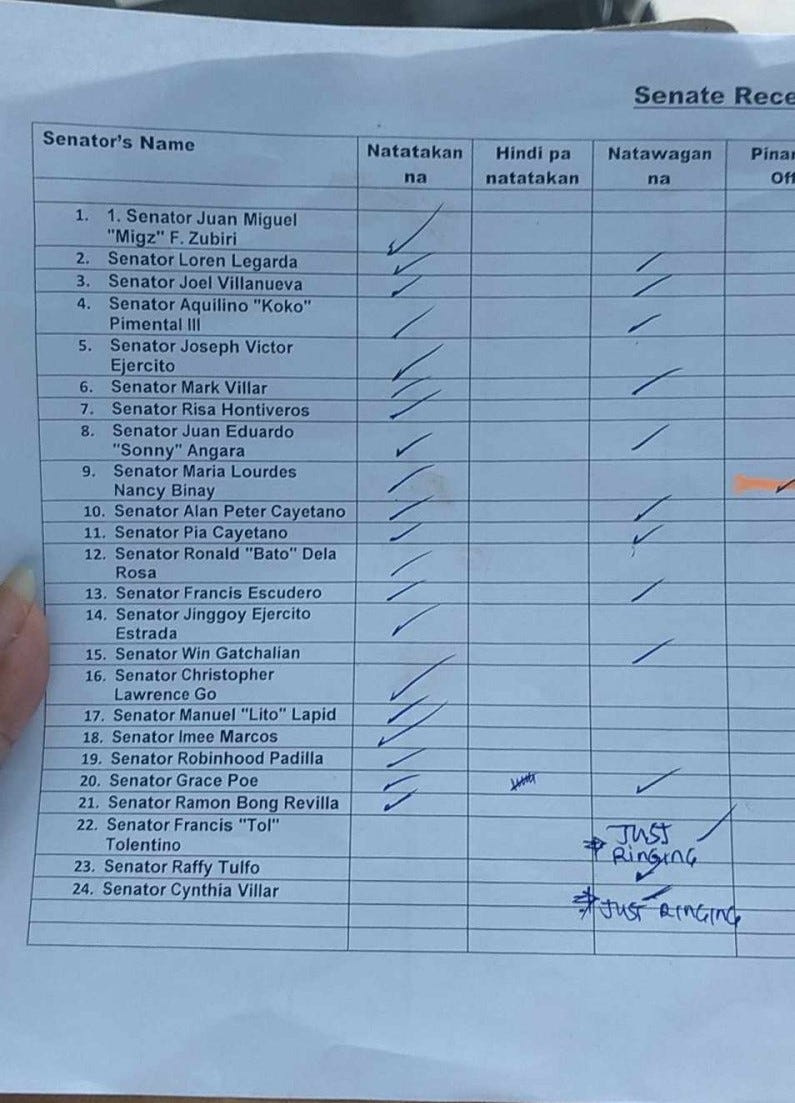 Senate Rece
Senator's Name
Natatakan na
Hindi pa natatakan
Natawagan na
Pinar
Off
1. 1. Senator Juan Miguel
"Migz" F. Zubiri
2. Senator Loren Legarda
3. Senator Joel Villanueva
4. Senator Aquilino "Koko"
Pimental III
5. Senator Joseph Victor
Ejercito
6. Senator Mark Villar
7. Senator Risa Hontiveros
8. Senator Juan Eduardo
"Sonny" Angara
9. Senator Maria Lourdes
Nancy Binay
10. Senator Alan Peter Cayetano
11. Senator Pia Cayetano
12. Senator Ronald "Bato" Dela
Rosa
13. Senator Francis Escudero
14. Senator Jinggoy Ejercito
Estrada
15. Senator Win Gatchalian
16. Senator Christopher
Lawrence Go
17. Senator Manuel "Lito" Lapid
18. Senator Imee Marcos
19. Senator Robinhood Padilla
20. Senator Grace Poe
21. Senator Ramon Bong Revilla
22. Senator Francis "Tol"
Tolentino
JUST
RINGING
23. Senator Raffy Tulfo
24. Senator Cynthia Villar
JUST RINGING